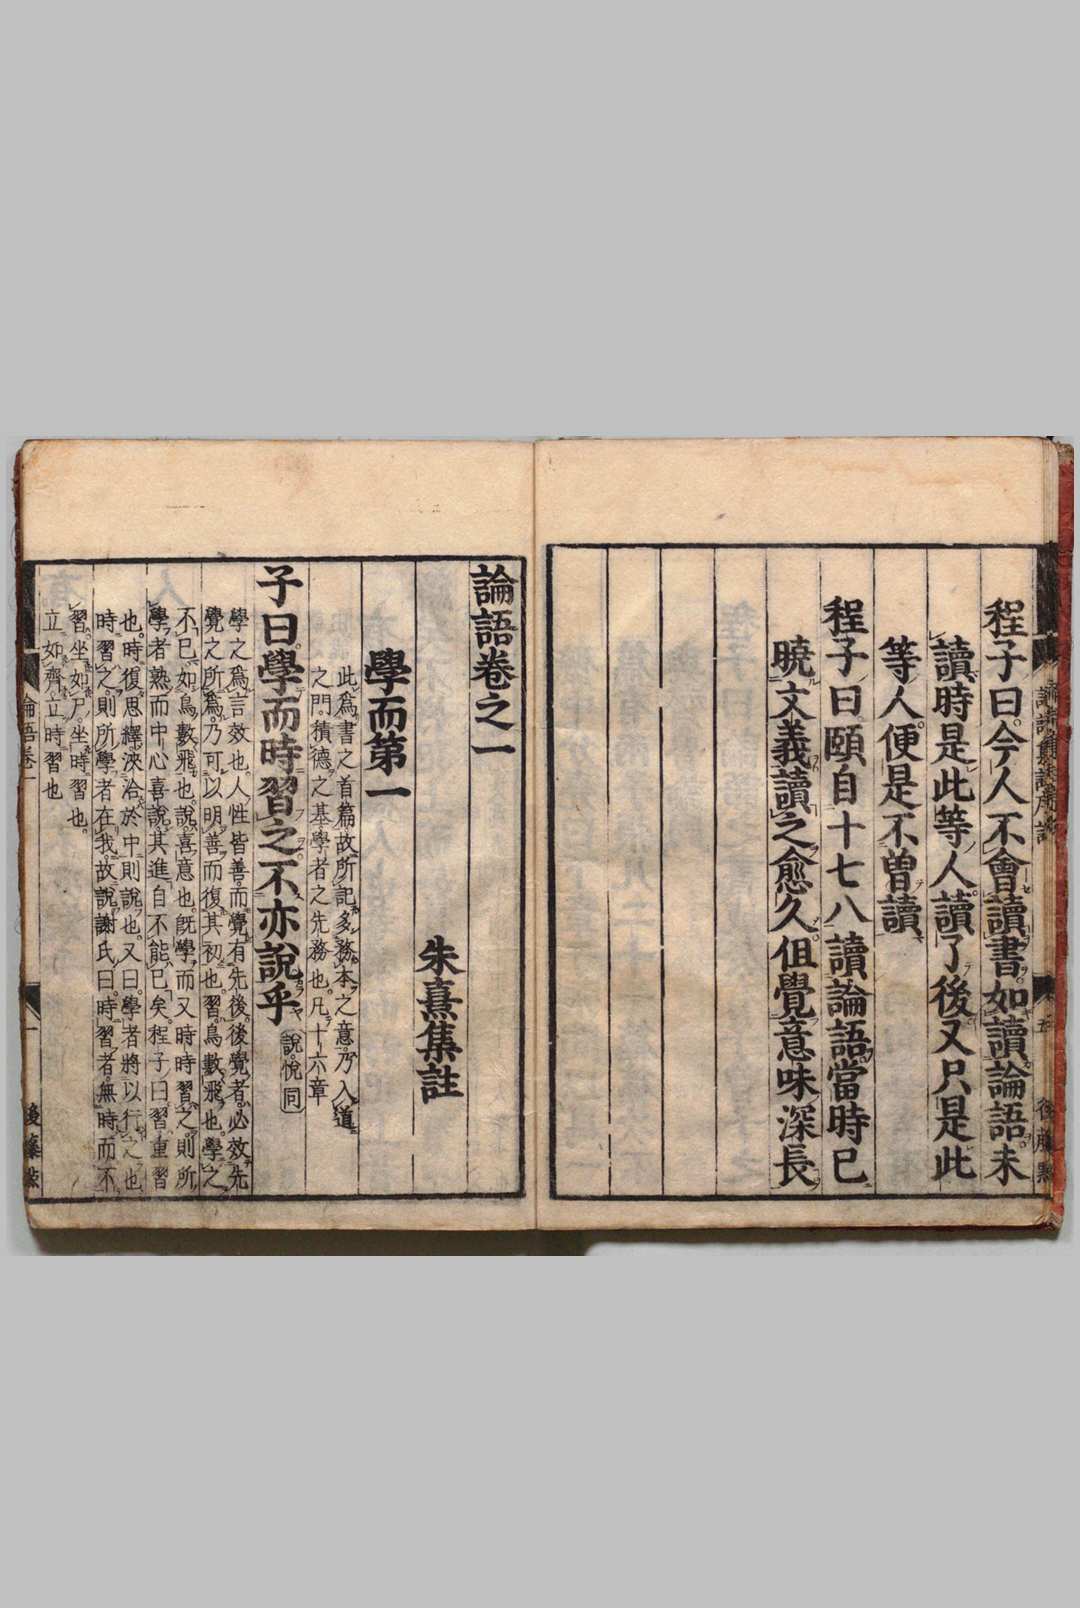 程子曰今人不會讀書如讀論語未
讀時是此等人讀了後又只是此
等人便是不曽讀
程子曰頤自十七八讀論語當時已
曉文義讀之愈久但覺意味深長
論語卷之一
朱熹集註
學而第一
此爲書之首篇故所記多務本之意乃入道
之門積德之基學者之先務也凡十六章
子曰學而時習之不亦說乎
說悅同
學之爲言效也人性皆善而覺有先後後覺者必效先
覺之所爲乃可以明善而復其初也習鳥數飛也學之
不已如鳥數飛也說喜意也旣學而又時時習之則所
學者熟而中心喜說其進自不能已矣程子曰習重習
也時復思繹浹洽於中則說也又曰學者將以行之也
時習之則所學者在我故說謝氏曰時習者無時而不
習坐如尸坐時習也
立如齊立時習也
論語卷一
一
後藤點